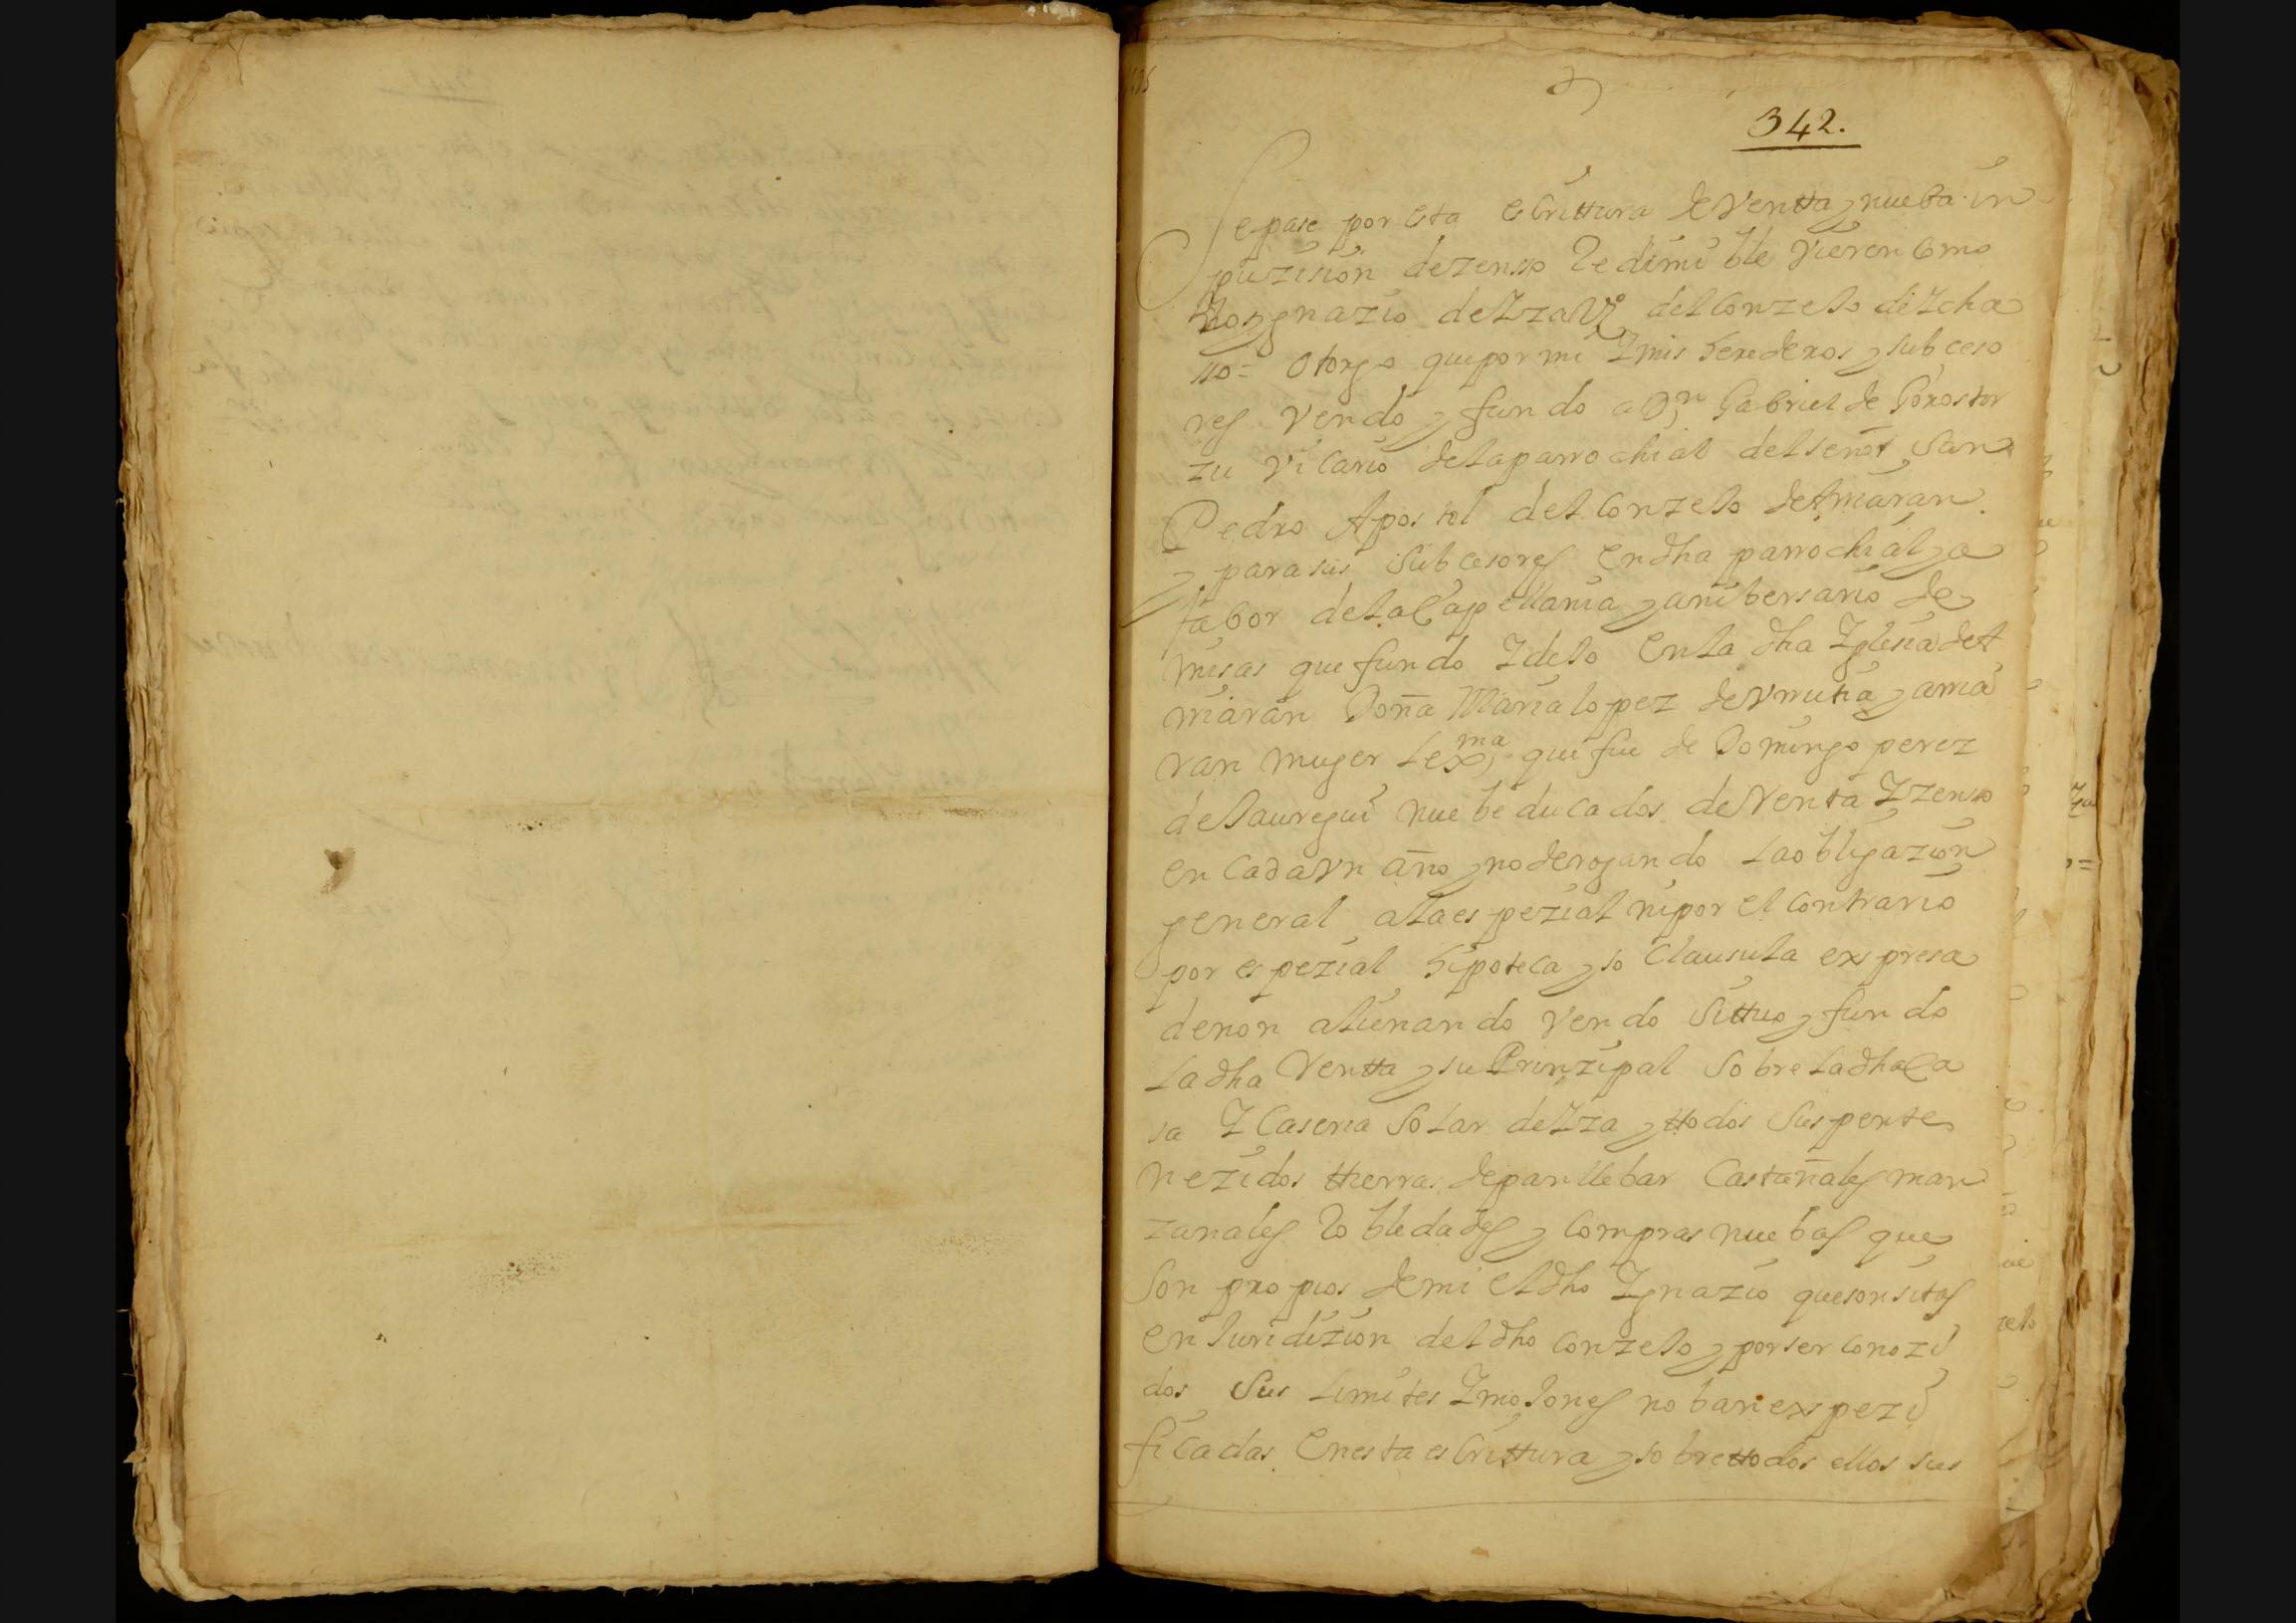 342.
Sepase por esta escrittura de Ventta y nueba im
puzision dezensso Redimible Vieren Como
Yo Ygnazio de Yza Vº del Conzejo de Ycha
sso = Otorgo que por mi Y mis herederos y subceso
res Vendo y fundo a Dn Gabriel de Gorostor
zu Vicario de la parrochial del señor San
Pedro Apostol del Conzejo de Amaran.
y para sus Subcesores en dha parrochial y a
fabor de la Capellania y anibersario de
misas que fundo Y dejo en la dha Yglesia de A
maran Doña Maria lopez de Vrrutia y ama
ran muger lexma que fue de Domingo perez
de Jauregui nuebe ducados de Renta Y zenso
en Cada Vn año y no derogando la obligazion
general a la espezial ni por el Contrario
por espezial hipoteca y so Clausula expresa
de non alienando Vendo Sittuo y fundo
la dha Rentta y su Prinzipal Sobre la dha Ca
sa Y Caseria Solar de Yza y ttodos Sus perte
nezidos ttierras de pan llebar Castañales man
zanales Robledades y Compras nuebas que
Son propios de mi el dho Ygnazio que son sitas
en Juridizion del dho Conzejo y por ser Conozi
dos Sus Limites Y mojones no ban expezi
ficadas en esta escrittura y sobre ttodos ellos sus